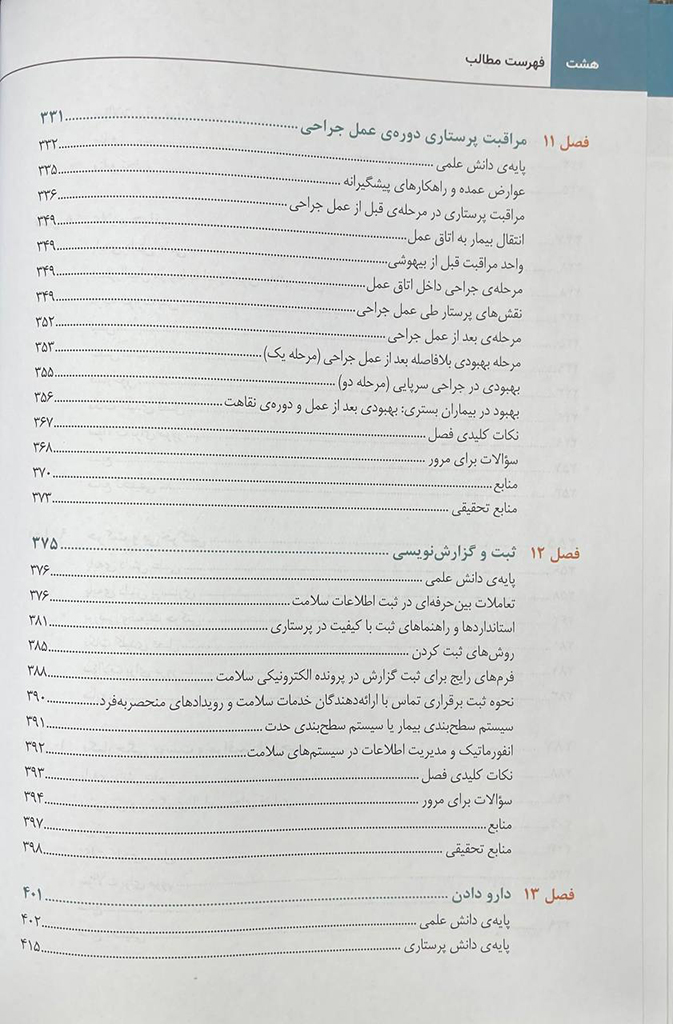 هشت فهرست مطالب
فصل ۱۱ مراقبت پرستاری دوره‌ی عمل جراحی ۳۳۱
پایه‌ی دانش علمی ۳۳۲
عوارض عمده و راهکارهای پیشگیرانه ۳۳۵
مراقبت پرستاری در مرحله‌ی قبل از عمل جراحی ۳۳۶
انتقال بیمار به اتاق عمل ۳۴۹
واحد مراقبت قبل از بیهوشی ۳۴۹
مرحله‌ی جراحی داخل اتاق عمل ۳۴۹
نقش‌های پرستار طی عمل جراحی ۳۴۹
مرحله‌ی بعد از عمل جراحی ۳۵۲
مرحله بهبودی بلافاصله بعد از عمل جراحی (مرحله یک) ۳۵۳
بهبودی در جراحی سرپایی (مرحله دو) ۳۵۵
بهبود در بیماران بستری: بهبودی بعد از عمل و دوره‌ی نقاهت ۳۵۶
نکات کلیدی فصل ۳۶۷
سؤالات برای مرور ۳۶۸
منابع ۳۷۰
منابع تحقیقی ۳۷۳
فصل ۱۲ ثبت و گزارش‌نویسی ۳۷۵
پایه‌ی دانش علمی ۳۷۶
تعاملات بین‌حرفه‌ای در ثبت اطلاعات سلامت ۳۷۶
استانداردها و راهنماهای ثبت با کیفیت در پرستاری ۳۸۱
روش‌های ثبت کردن ۳۸۵
فرم‌های رایج برای ثبت گزارش در پرونده الکترونیکی سلامت ۳۸۸
نحوه ثبت برقراری تماس با ارائه‌دهندگان خدمات سلامت و رویدادهای منحصربه‌فرد ۳۹۰
سیستم سطح‌بندی بیمار یا سیستم سطح‌بندی حدت ۳۹۱
انفورماتیک و مدیریت اطلاعات در سیستم‌های سلامت ۳۹۲
نکات کلیدی فصل ۳۹۳
سؤالات برای مرور ۳۹۴
منابع ۳۹۷
منابع تحقیقی ۳۹۸
فصل ۱۳ دارو دادن ۴۰۱
پایه‌ی دانش علمی ۴۰۲
پایه‌ی دانش پرستاری ۴۱۵